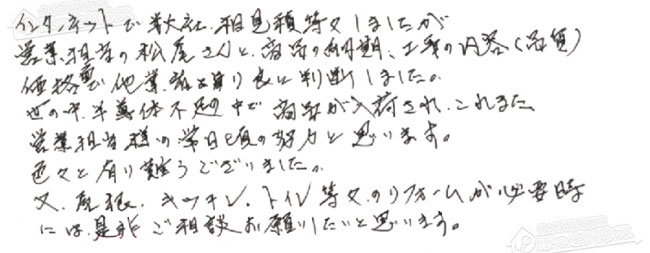 インターネットで数社、相見積等々しましたが
営業担当の松尾さんと、商品の納期、工事の内容(品質)
価格面で他業者より良いと判断しました。
世の中半導体不足の中で商品が入荷され、これまた
営業担当様の常日頃の努力と思います。
色々と有り難うございました。
又、屋根、キッチン、トイレ等々のリフォームが必要時
には是非ご相談お願いしたいと思います。